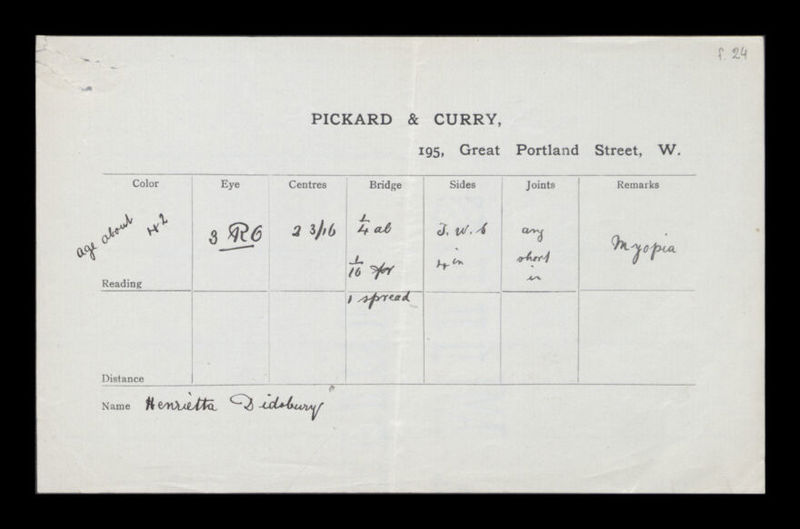 f. 24
PICKARD & CURRY,
195, Great Portland Street, W.
Color Eye Centres Bridge Sides Joints Remarks
age about 42
3 2 3/16 1/4 ab 4 in any short in Myopia
1/16 for
Reading
1 spread
Distance
Name Henrietta Didsbury